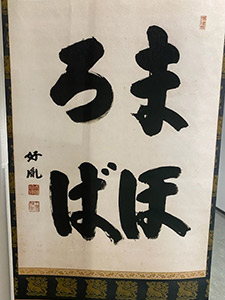 まほ
ろば
好胤